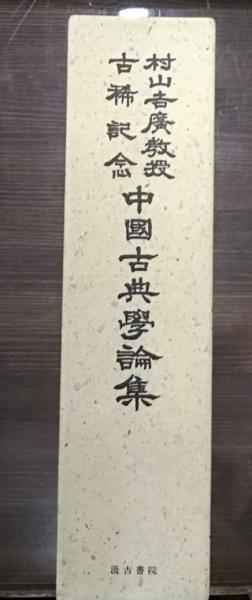 村山吉廣教授
古稀記念
中國古典學論集
汲古書院